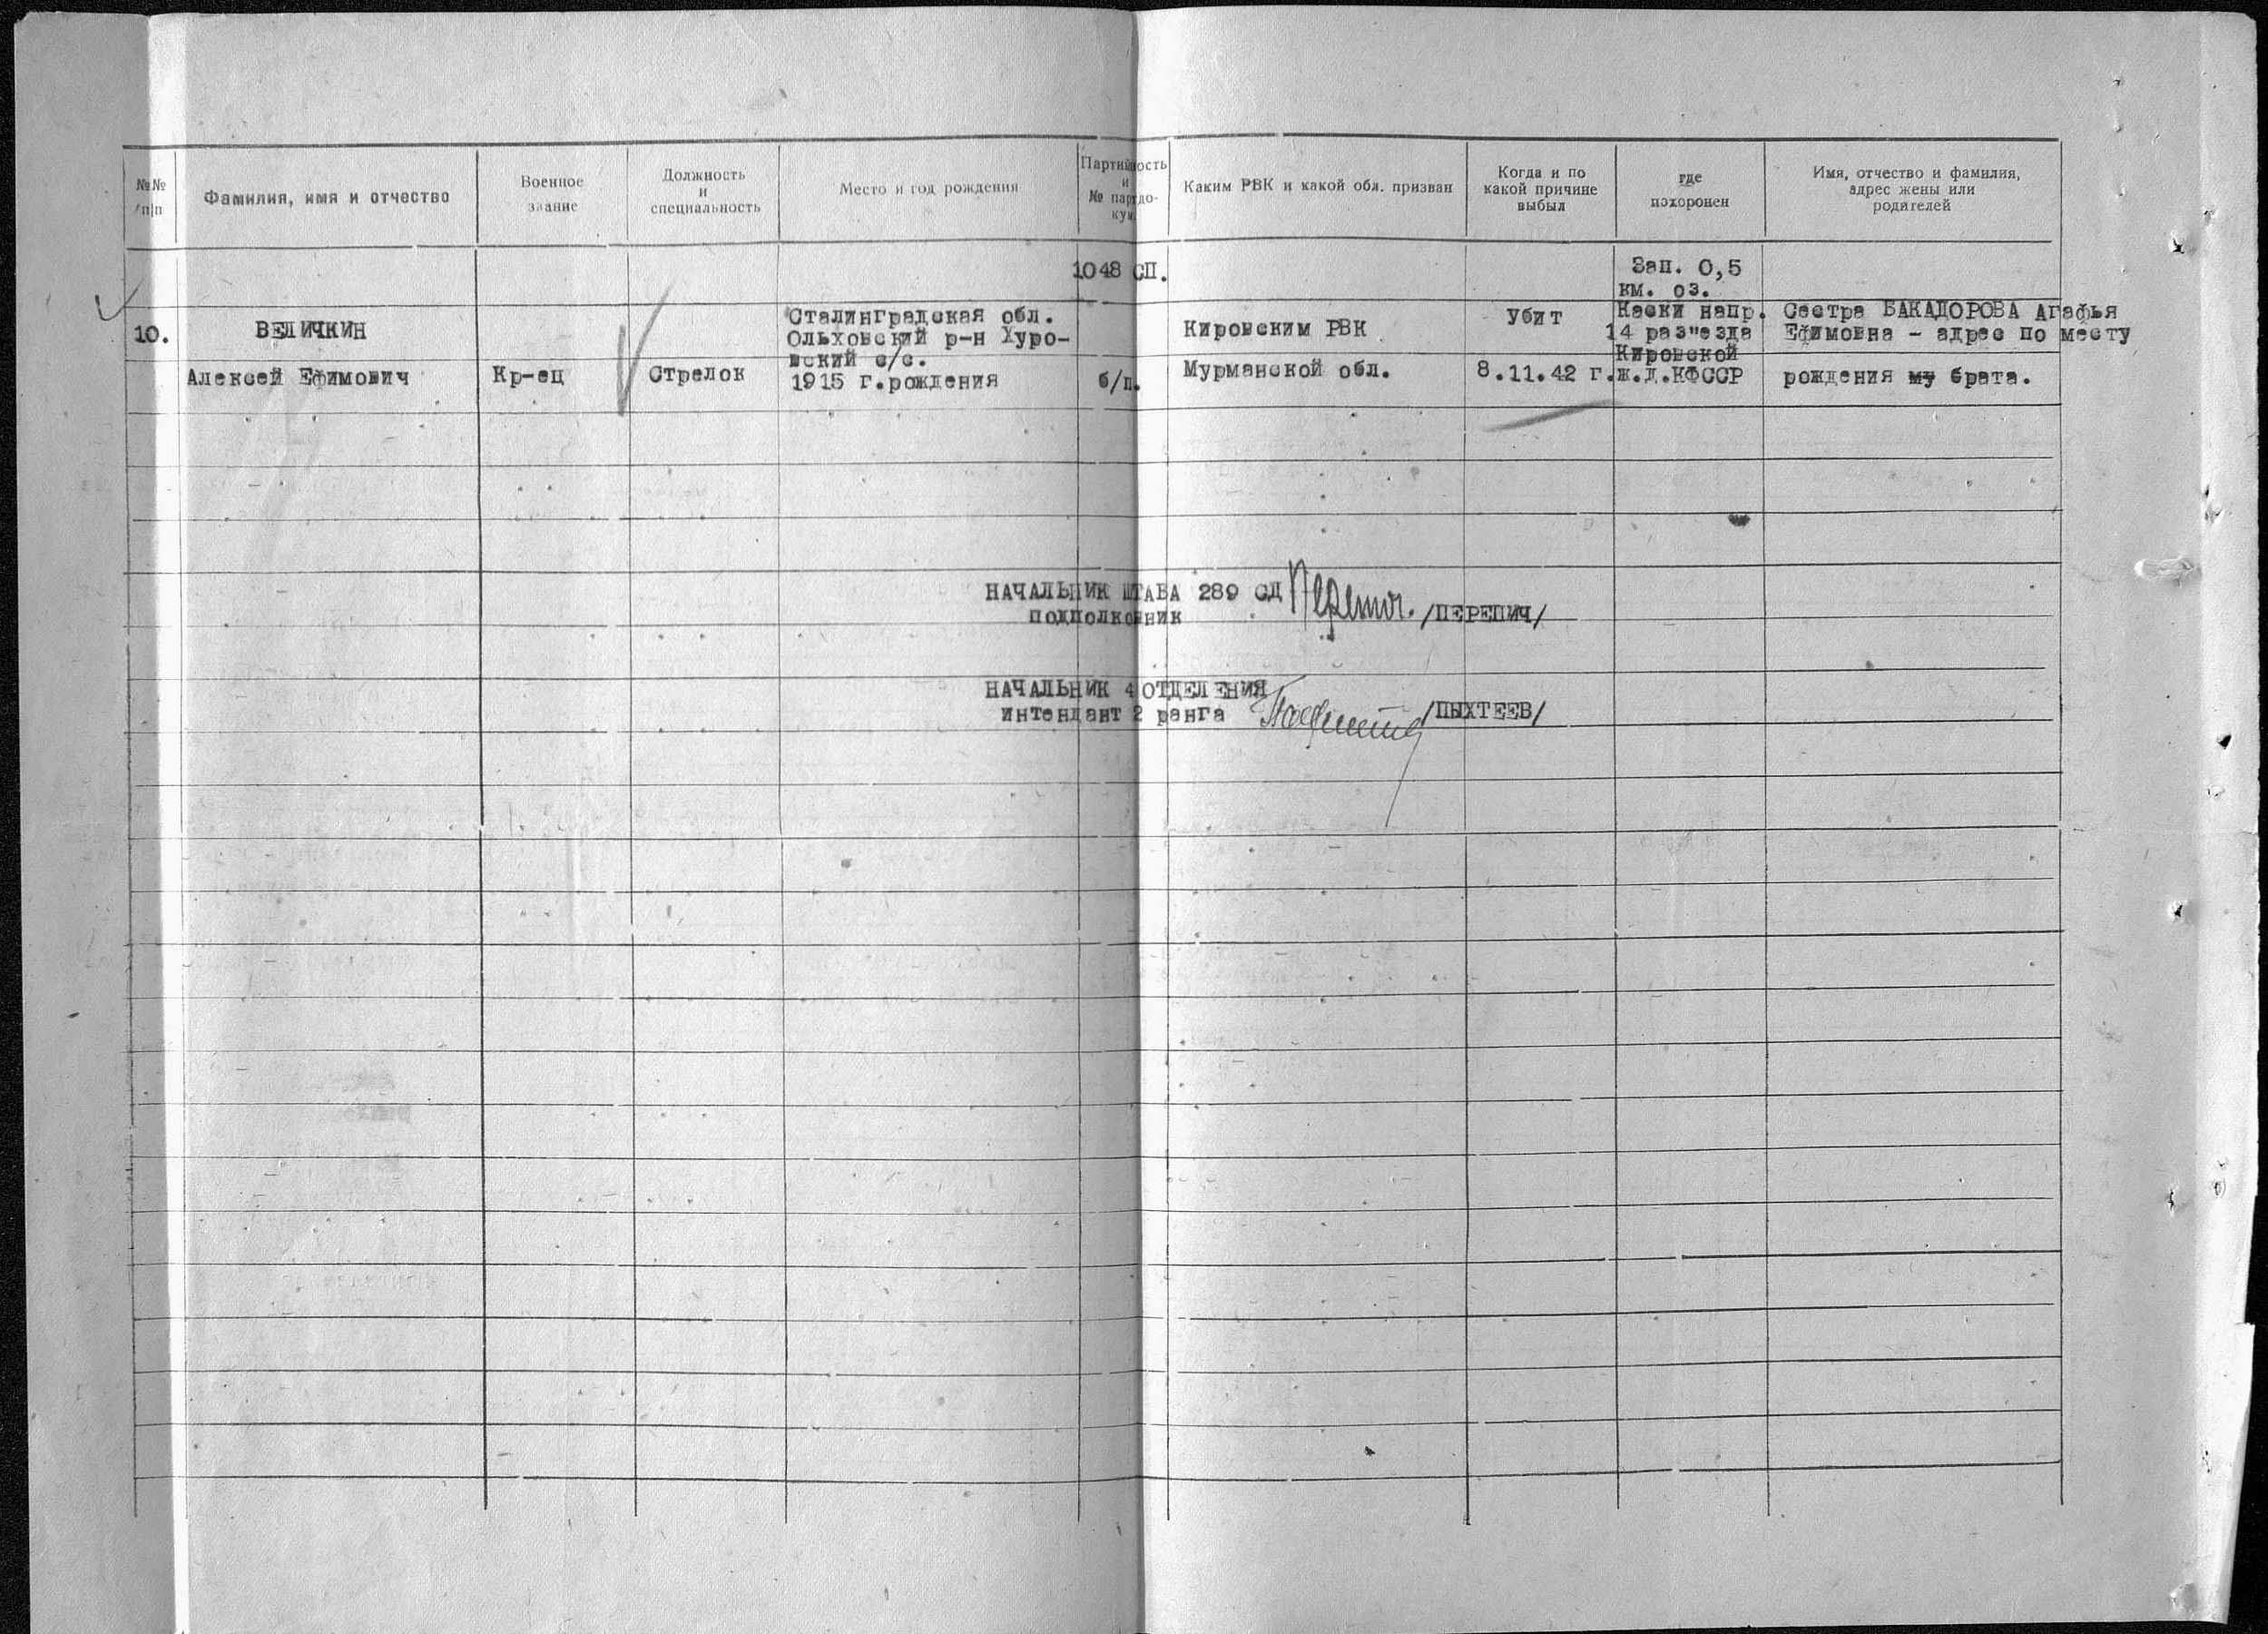 №№ п|п
Фамилия, имя и отчество
Военное звание
Должность и специальность
Место и год рождения
Партийность и № партдо-кум.
Каким РВК и какой обл. призван
Когда и по какой причине выбыл
где похоронен
Имя, отчество и фамилия, адрес жены или родителей
1048 СП.
10.
ВЕЛИЧКИН
Алексей Ефимович
Кр-ец
Стрелок
Сталинградская обл.
Ольховский р-н Хуро-
вский с/с.
1915 г.рождения
б/п.
Кировским РВК
Мурманской обл.
Убит
8.11.42 г.
Зап. 0,5
км. оз.
Каски напр.
14 раз"езда
Кировской
ж.д.КФССР
Сестра БАКАДОРОВА Агафья
Ефимовна - адрес по месту
рождения му брата.
НАЧАЛЬНИК ШТАБА 289 СД
подполковник
/ПЕРЕПИЧ/
НАЧАЛЬНИК 4 ОТДЕЛЕНИЯ
интендант 2 ранга
/ПЫХТЕЕВ/